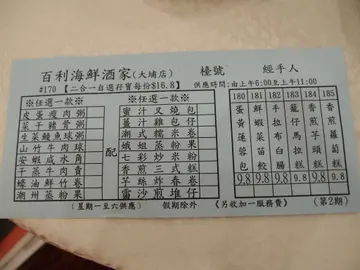 百利海鮮酒家(大埔店) 檯號 經手人
#170 【二合一自選孖寶每份$16.8】 供應時間:由上午6:00至上午11:00
※任選一款※
皮蛋瘦肉粥
菜干豬骨粥
生菜鯪魚球粥
山竹牛肉球
安蝦咸水角
干蒸燒賣
蠔油鮮竹卷
潮州蒸粉果
配
※任選一款※
蜜汁叉燒包
薑汁雞包仔
潮式糯米卷
娥姐蒸粉果
七彩炒米粉
香煎三式糕
芋絲炸春卷
雷沙煎堆仔
180 181 182 183 184 185
蛋黃蓮蓉包 9.8
鮮蝦菜苗餃 9.8
手拉布腸 9.8
籠仔馬拉糕 9.8
香煎芋頭糕 9.8
香煎蘿蔔糕 9.8
(星期一至六供應) 假期除外 (另收加一服務費) (第2期)